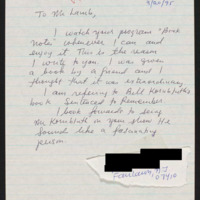 9/20/95
To Mr Lamb,
I watch your program "Book
Notes" whenever I can and
enjoy it. This is the reason
I write to you. I was given
a book by a friend and I
thought that it was extraordinary.
I am refering to Bill Kornbluth's
book Sentenced to Remember.
I look forward to seeing
Mr Kornbluth on your show. He
sounds like a fascinating
person.
NJ
07410